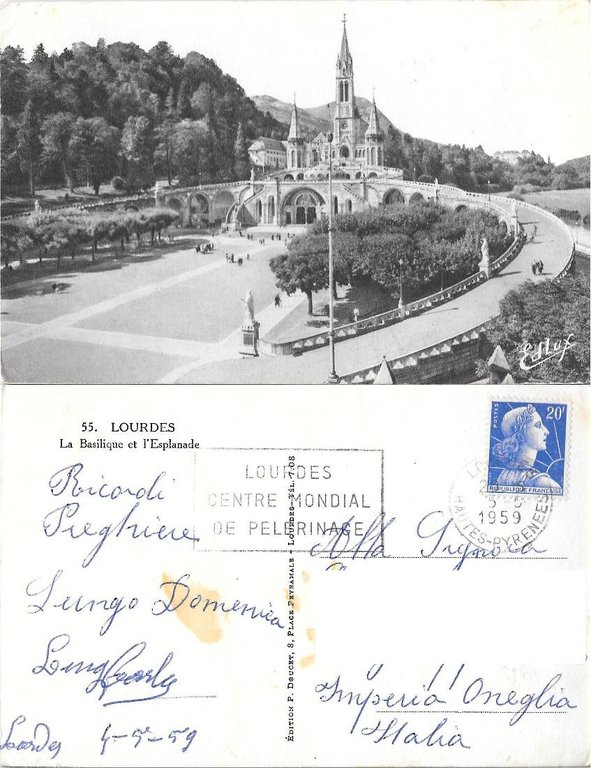 Edlux
55. LOURDES
La Basilique et l'Esplanade
LOURDES
CENTRE MONDIAL
DE PELERINAGE
POSTES 20F
REPUBLIQUE FRANÇAISE
5
1959
HAUTES-PYRENEES
EDITION P. DOUCET, 8, PLACE PEYRAMALE - LOURDES-TÉL. 7.08
Ricordi
Preghiere
Lungo Domenica
Lourdes 4-5-59
Alla Signora
Imperia Oneglia
Italia